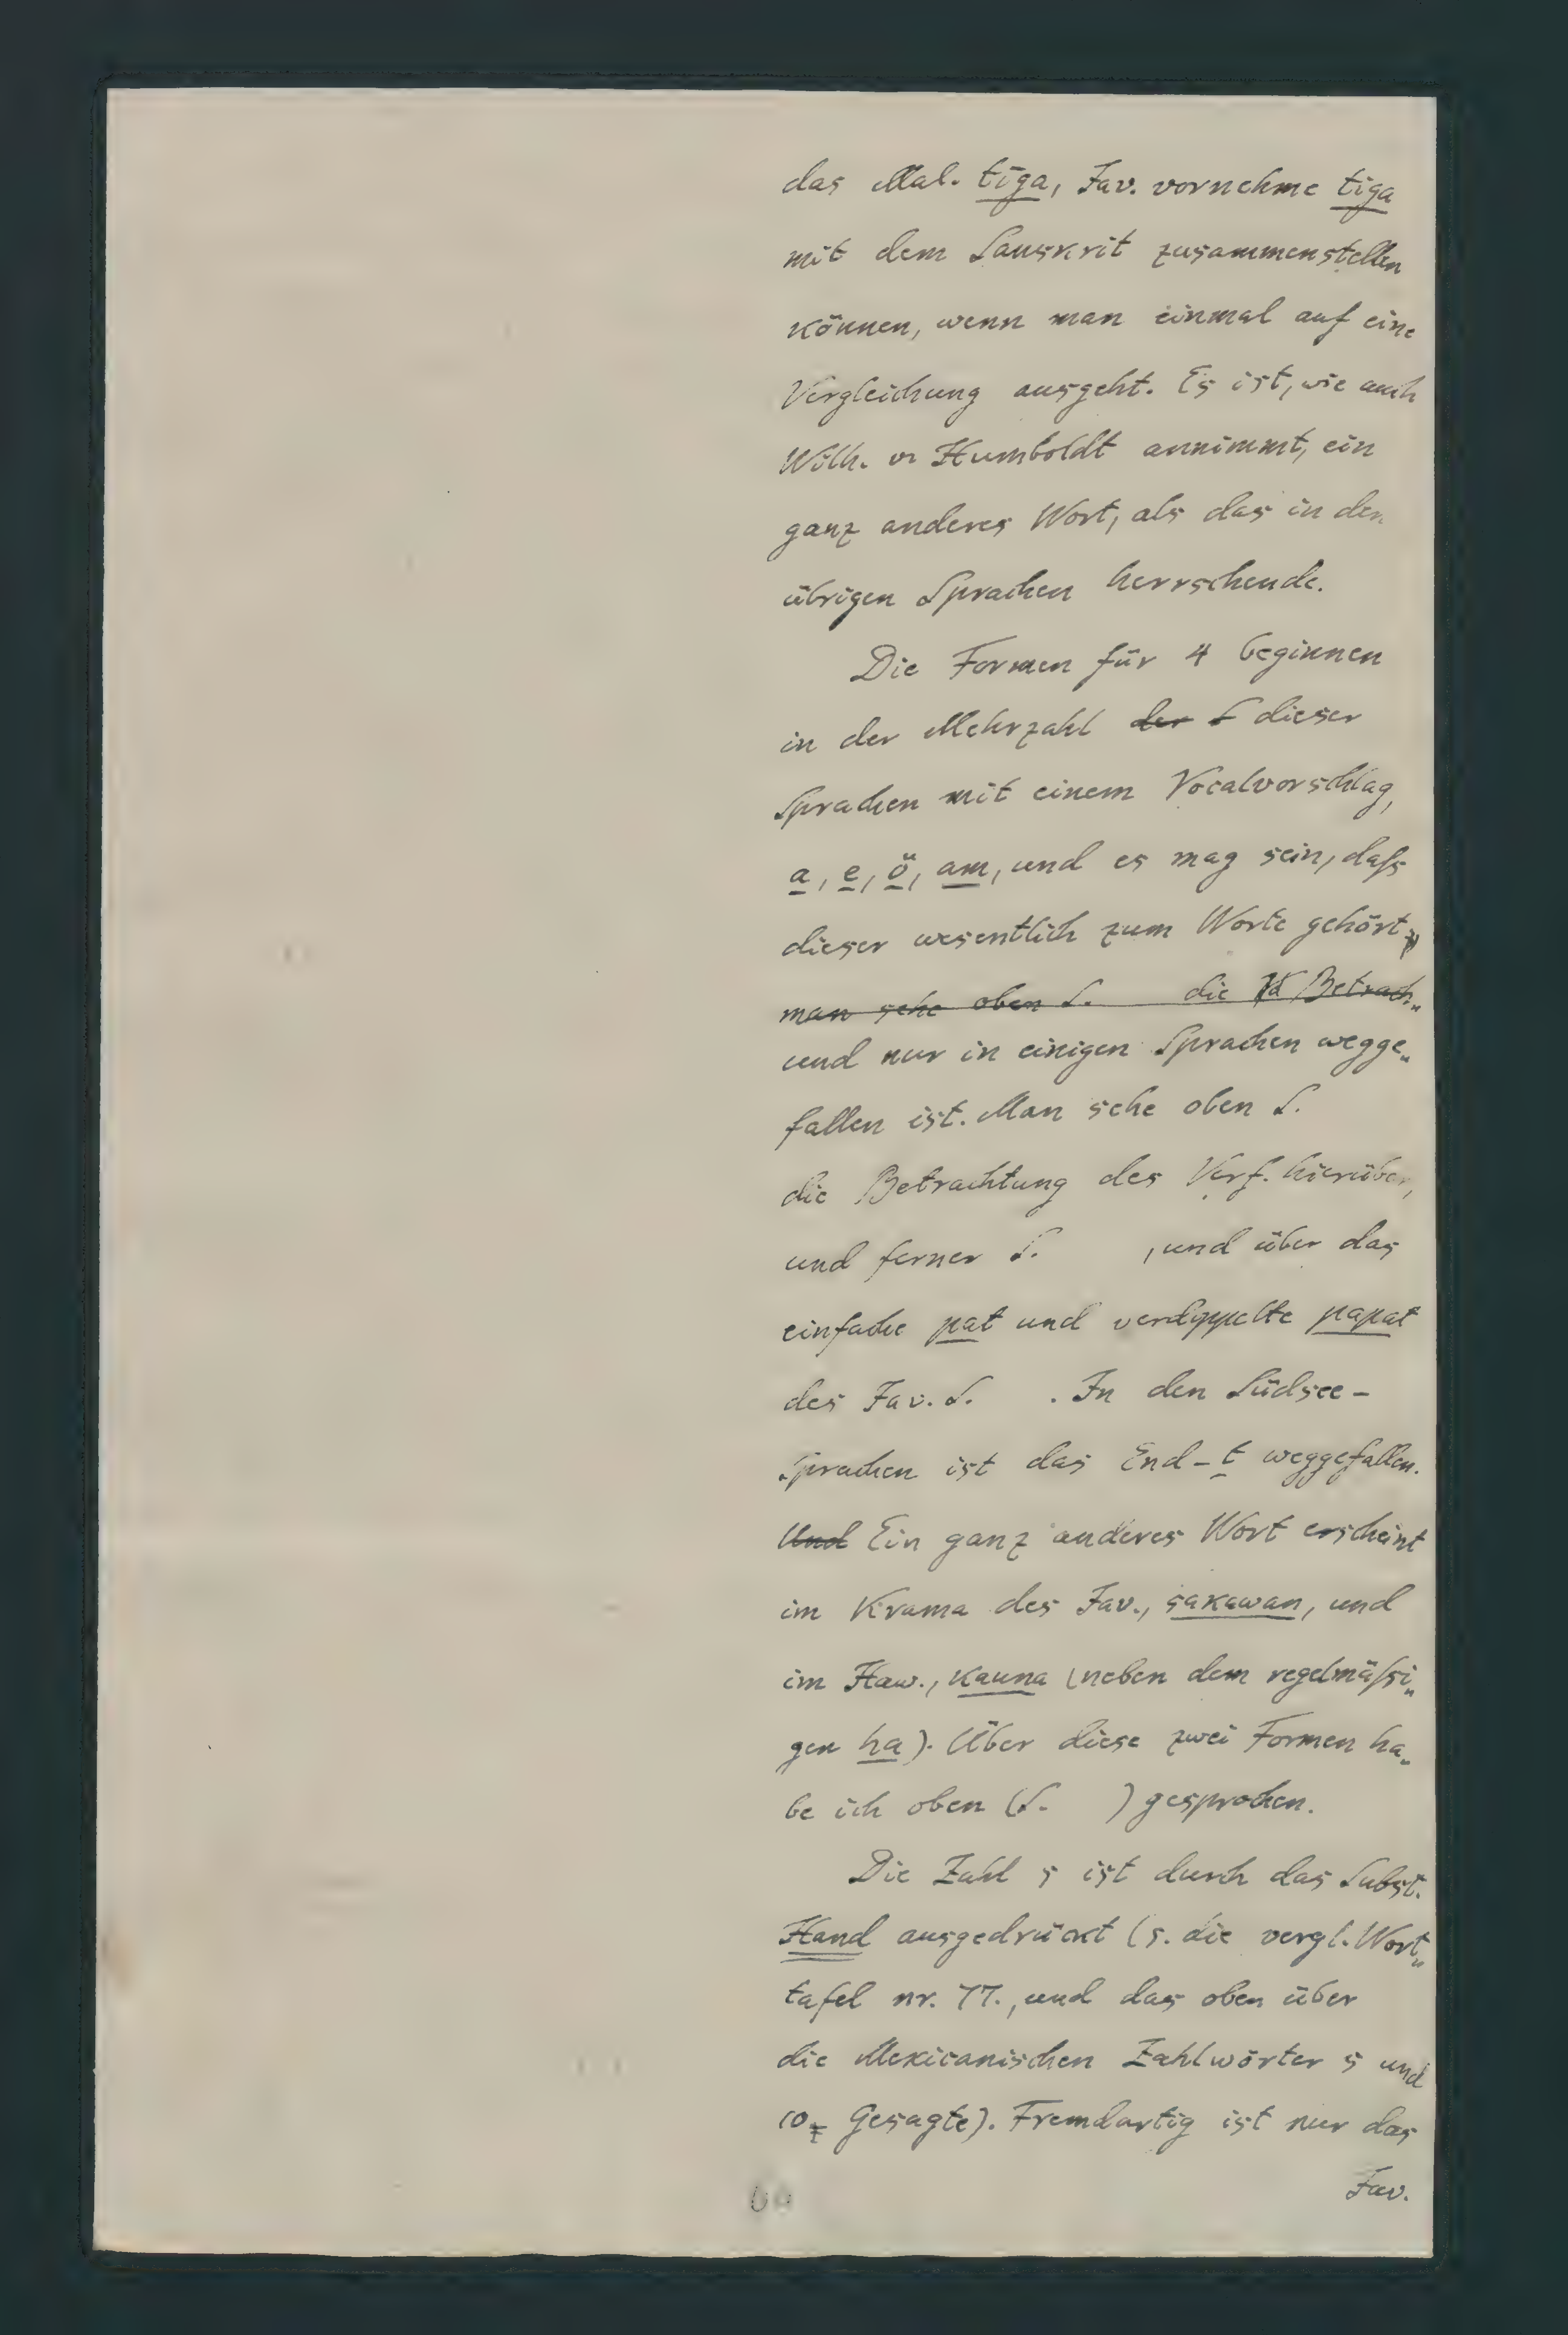 das Mal. tīga, Jav. vornehme tiga
mit dem Sanskrit zusammenstellen
können, wenn man einmal auf eine
Vergleichung ausgeht. Es ist, wie auch
Wilh. v. Humboldt annimmt, ein
ganz anderes Wort, als das in den
übrigen Sprachen herrschende.
Die Formen für 4 beginnen
in der Mehrzahl der S dieser
Sprachen mit einem Vocalvorschlag,
a, e, ö, am, und es mag sein, daſs
dieser wesentlich zum Worte gehört
man sehe oben S. die Betrach„
und nur in einigen Sprachen wegge„
fallen ist. Man sehe oben S.
die Betrachtung des Verf. hierüber,
und ferner S. , und über das
einfache pat und verdoppelte papat
des Jav. S. . In den Südsee-
Sprachen ist das End-t weggefallen.
Und Ein ganz anderes Wort erscheint
im Krama des Jav., sakawan, und
im Haw., kauna (neben dem regelmäſsi„
gen ha). Über diese zwei Formen ha„
be ich oben (S. ) gesprochen.
Die Zahl 5 ist durch das Subst.
Hand ausgedrückt (s. die vergl. Wort„
tafel nr. 77., und das oben über
die Mexicanischen Zahlwörter 5 und
10 Gesagte). Fremdartig ist nur das
Jav.